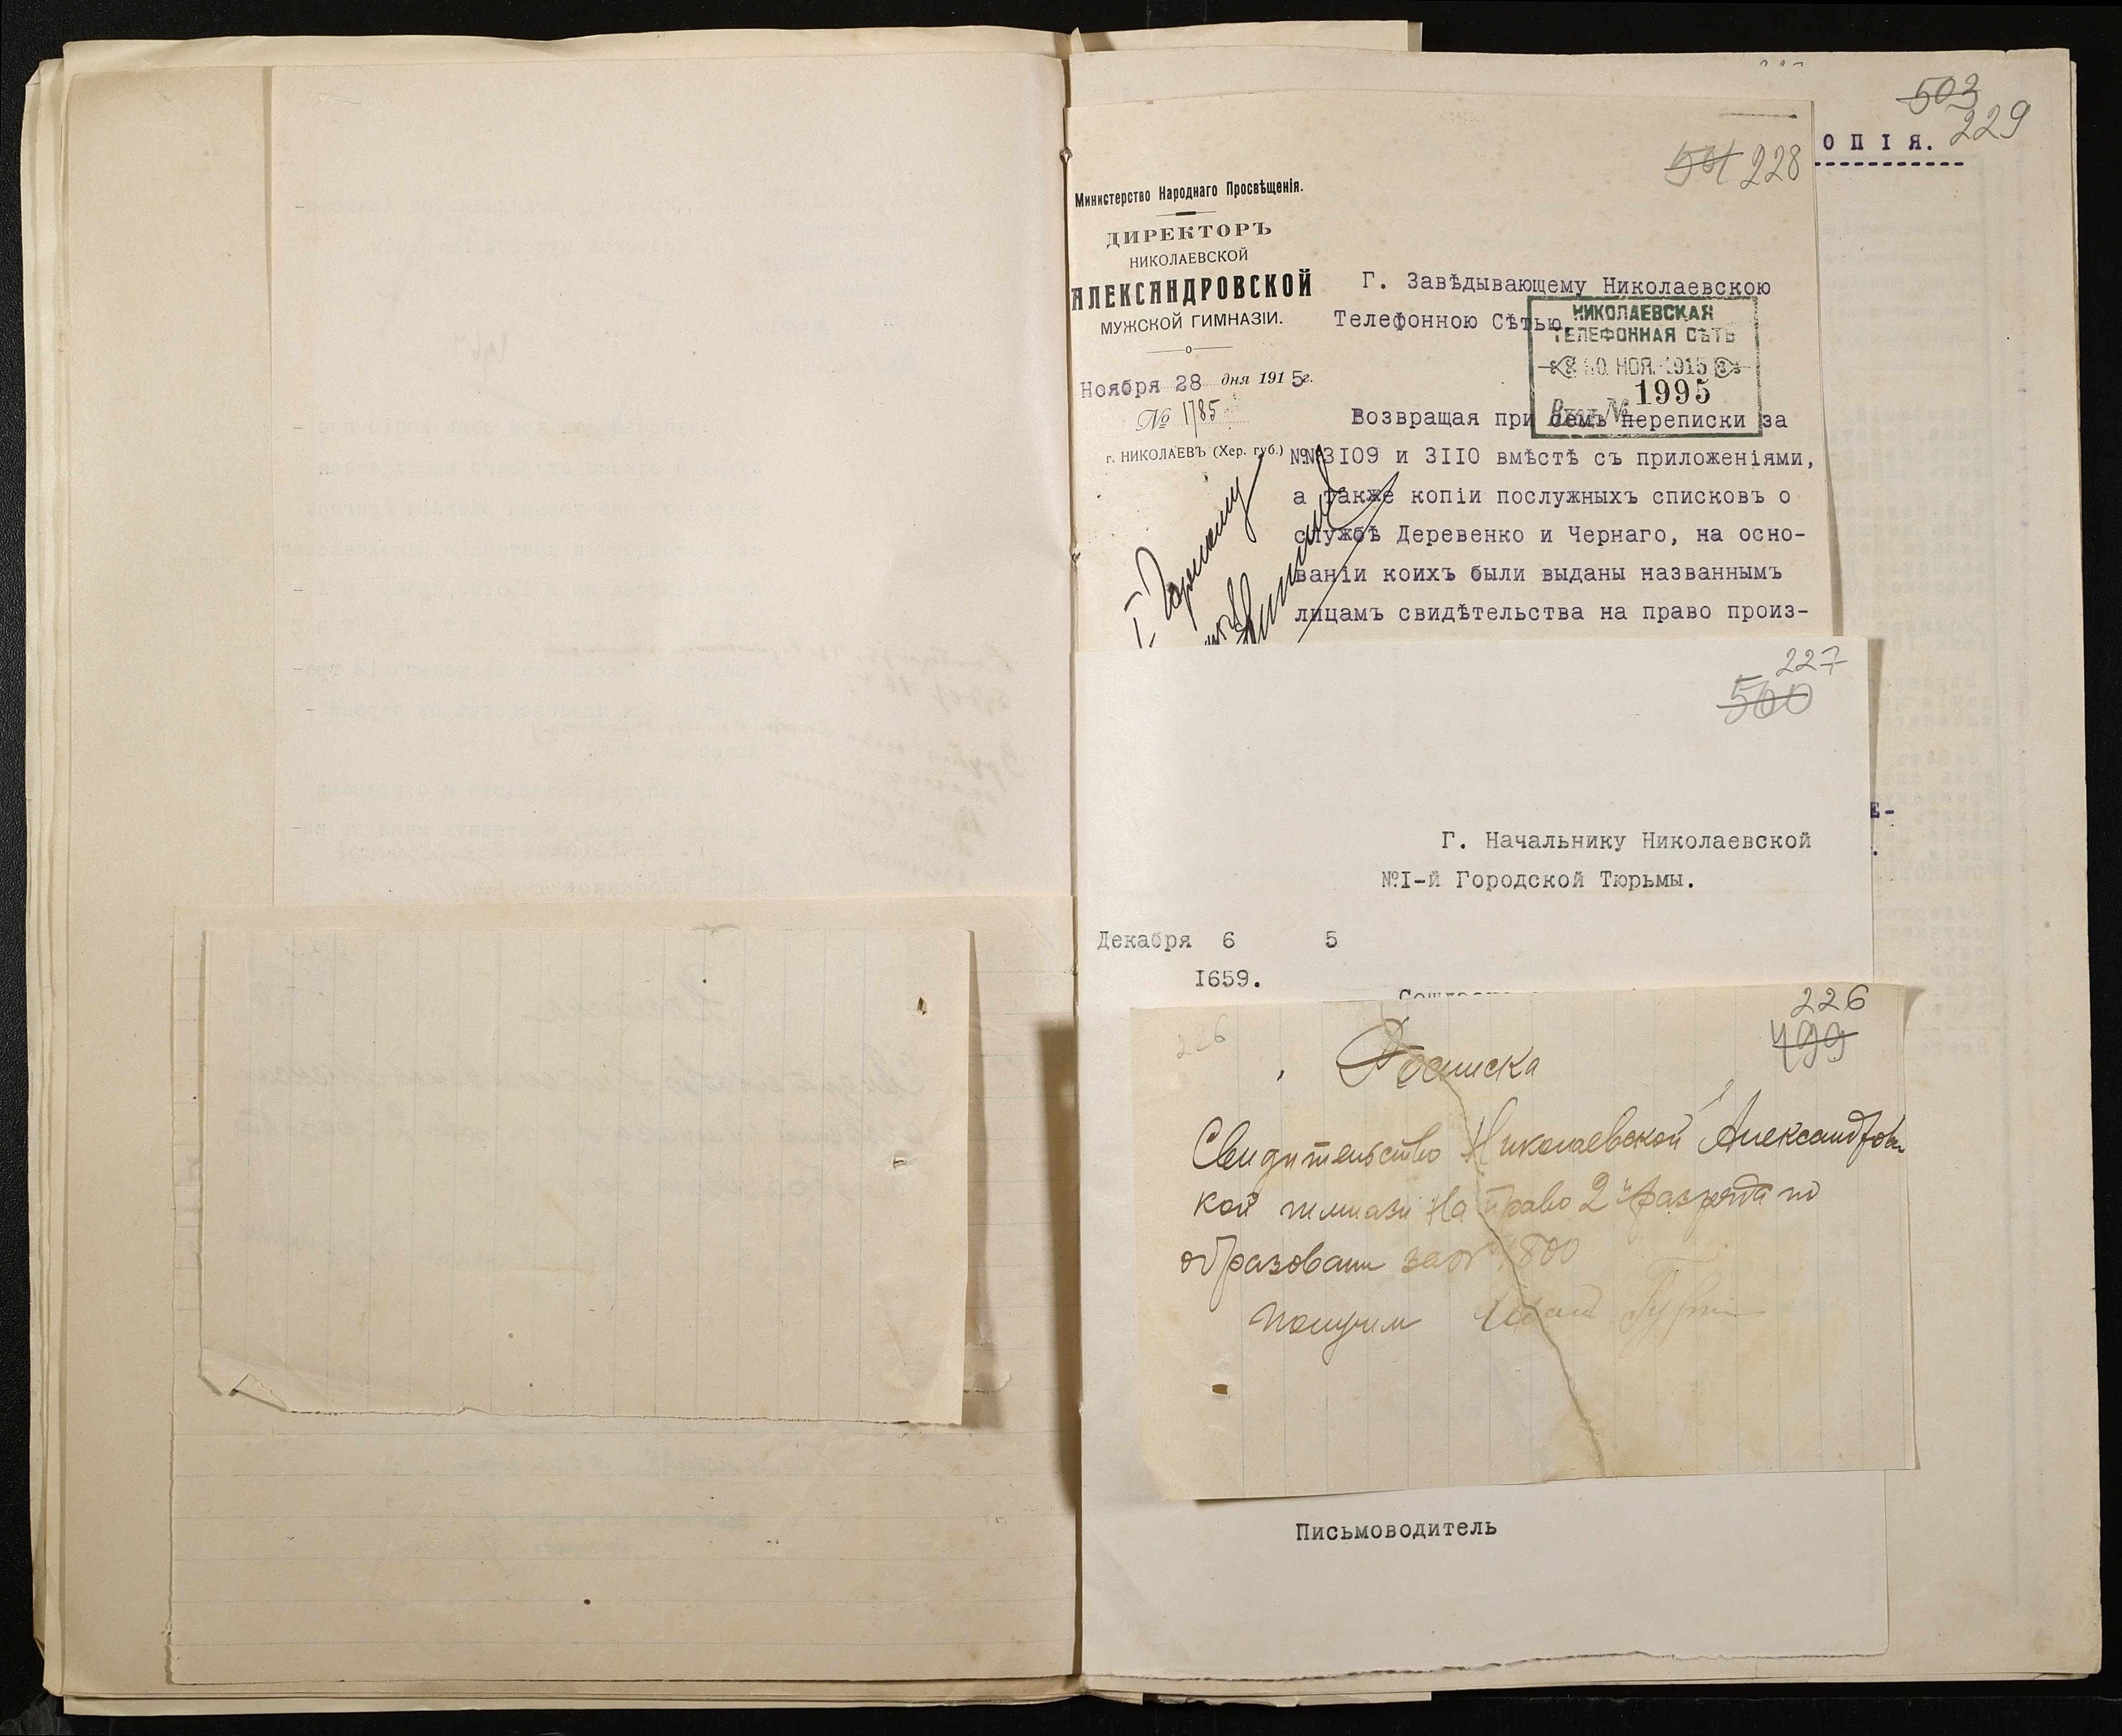 503
229
ОПІЯ.
501 228
Министерство Народнаго Просвѣщенія.
ДИРЕКТОРЪ
НИКОЛАЕВСКОЙ
АЛЕКСАНДРОВСКОЙ
МУЖСКОЙ ГИМНАЗІИ.
Ноября 28 дня 1915г.
№ 1785
г. НИКОЛАЕВЪ (Хер. губ.)
Г. Завѣдывающему Николаевскою
Телефонною Сѣтью
НИКОЛАЕВСКАЯ
ТЕЛЕФОННАЯ СѢТЬ
30 НОЯ. 1915
1995
Вход. №
Возвращая при семъ переписки за
№№ 3I09 и 3II0 вмѣстѣ съ приложеніями,
а также копіи послужныхъ списковъ о
службѣ Деревенко и Чернаго, на осно-
ваніи коихъ были выданы названнымъ
лицамъ свидѣтельства на право произ-
227
500
Е-
Г. Начальнику Николаевской
№I-й Городской Тюрьмы.
Декабря 6 5
I659.
226
499
226
Росписка
Свидительство Николаевской Александров
кой гимнази на право 2й разряда по
образовани за № 1800
получил Иван
Письмоводитель